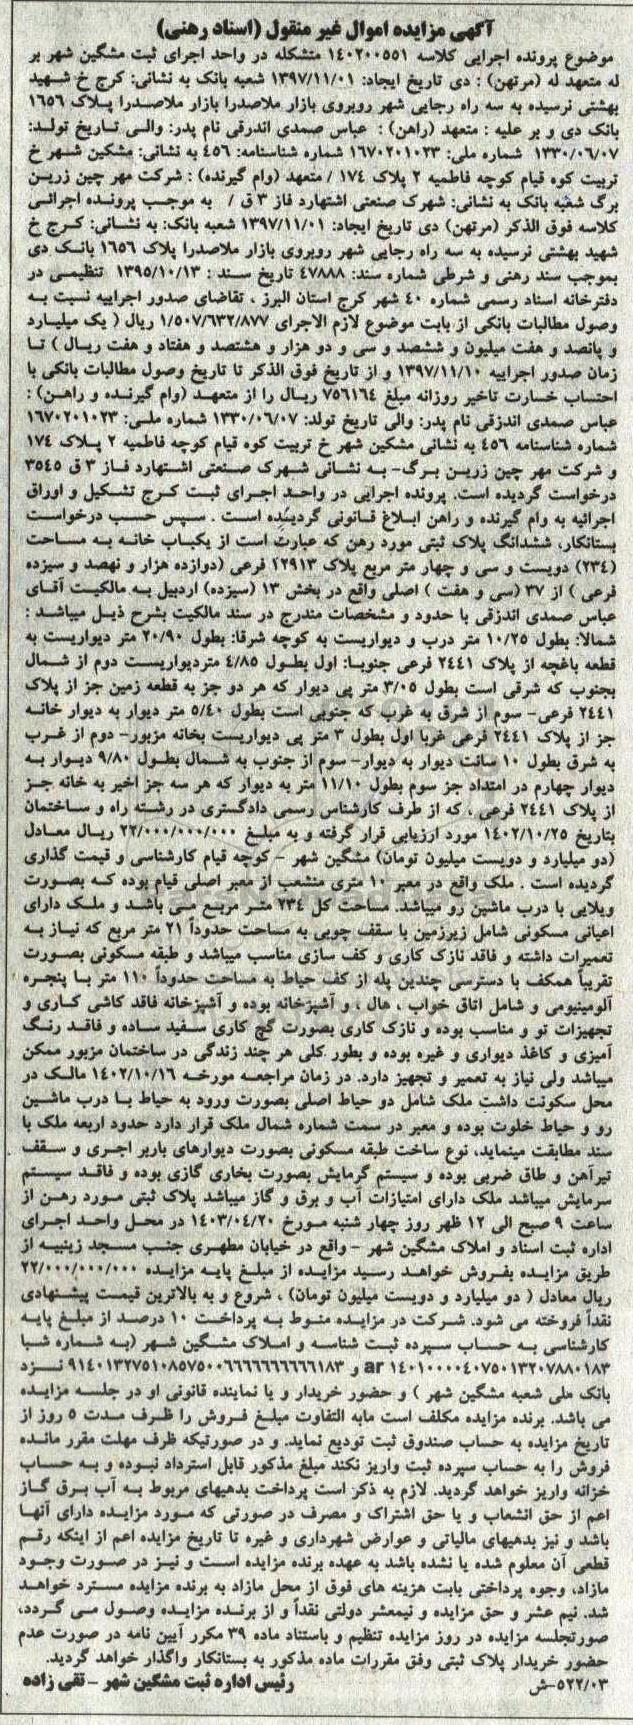 آگهی مزایده اموال غیر منقول (اسناد رهنی)
موضوع پرونده اجرایی کلاسه ۱۴۰۲۰۰۵۵۱ متشکله در واحد اجرای ثبت مشگین شهر بر
له متعهد له (مرتهن) : دی تاریخ ایجاد: ۱۳۹۷/۱۱/۰۱ شعبه بانک به نشانی: کرج خ شهید
بهشتی نرسیده به سه راه رجایی شهر روبروی بازار ملاصدرا بازار ملاصدرا پلاک ۱۶۵۶
بانک دی و بر علیه : متعهد (راهن) : عباس صمدی اندرقی نام پدر: والی تاریخ تولد:
۱۳۳۰/۰۶/۰۷ شماره ملی: ۱۶۷۰۲۰۱۰۲۳ شماره شناسنامه: ۴۵۶ به نشانی: مشگین شهر خ
تربیت کوه قیام کوچه فاطمیه ۲ پلاک ۱۷۴ / متعهد (وام گیرنده) : شرکت مهر چین زرین
برگ شعبه بانک به نشانی: شهرک صنعتی اشتهارد فاز ۳ ق / به موجب پرونده اجرائی
کلاسه فوق الذکر (مرتهن) دی تاریخ ایجاد: ۱۳۹۷/۱۱/۰۱ شعبه بانک: به نشانی: کرج خ
شهید بهشتی نرسیده به سه راه رجایی شهر روبروی بازار ملاصدرا پلاک ۱۶۵۶ بانک دی
بموجب سند رهنی و شرطی شماره سند: ۴۷۸۸۸ تاریخ سند : ۱۳۹۵/۱۰/۱۳ تنظیمی در
دفترخانه اسناد رسمی شماره ۴۰ شهر کرج استان البرز ، تقاضای صدور اجراییه نسبت به
وصول مطالبات بانکی از بابت موضوع لازم الاجرای ۱/۵۰۷/۶۳۲/۸۷۷ ریال ( یک میلیارد
و پانصد و هفت میلیون و ششصد و سی و دو هزار و هشتصد و هفتاد و هفت ریال ) تا
زمان صدور اجراییه ۱۳۹۷/۱۱/۱۰ و از تاریخ فوق الذکر تا تاریخ وصول مطالبات بانکی با
احتساب خسارت تاخیر روزانه مبلغ ۷۵۶۱۶۴ ریال را از متعهد (وام گیرنده و راهن) :
عباس صمدی اندزقی نام پدر: والی تاریخ تولد: ۱۳۳۰/۰۶/۰۷ شماره ملی: ۱۶۷۰۲۰۱۰۲۳
شماره شناسنامه ۴۵۶ به نشانی مشگین شهر خ تربیت کوه قیام کوچه فاطمیه ۲ پلاک ۱۷۴
و شرکت مهر چین زرین برگ- به نشانی شهرک صنعتی اشتهارد فاز ۳ ق ۳۵۴۵
درخواست گردیده است. پرونده اجرایی در واحد اجرای ثبت کرج تشکیل و اوراق
اجرائیه به وام گیرنده و راهن ابلاغ قانونی گردیده است . سپس حسب درخواست
بستانکار، ششدانگ پلاک ثبتی مورد رهن که عبارت است از یکباب خانه به مساحت
(۲۳۴) دویست و سی و چهار متر مربع پلاک ۱۲۹۱۳ فرعی (دوازده هزار و نهصد و سیزده
فرعی ) از ۳۷ (سی و هفت ) اصلی واقع در بخش ۱۳ (سیزده) اردبیل به مالکیت آقای
عباس صمدی اندزقی با حدود و مشخصات مندرج در سند مالکیت بشرح ذیل میباشد :
شمالا: بطول ۱۰/۲۵ متر درب و دیواریست به کوچه شرقا: بطول ۲۰/۹۰ متر دیواریست به
قطعه باغچه از پلاک ۲۴۴۱ فرعی جنوبا: اول بطول ۴/۸۵ متردیواریست دوم از شمال
بجنوب که شرقی است بطول ۳/۰۵ متر پی دیوار که هر دو جز به قطعه زمین جز از پلاک
۲۴۴۱ فرعی- سوم از شرق به غرب که جنوبی است بطول ۵/۴۰ متر دیوار به دیوار خانه
جز از پلاک ۲۴۴۱ فرعی غربا اول بطول ۳ متر پی دیواریست بخانه مزبور- دوم از غرب
به شرق بطول ۱۰ سانت دیوار به دیوار- سوم از جنوب به شمال بطول ۹/۸۰ دیوار به
دیوار چهارم در امتداد جز سوم بطول ۱۱/۱۰ متر به دیوار که هر سه جز اخیر به خانه جز
از پلاک ۲۴۴۱ فرعی ، که از طرف کارشناس رسمی دادگستری در رشته راه و ساختمان
بتاریخ ۱۴۰۲/۱۰/۲۵ مورد ارزیابی قرار گرفته و به مبلغ ۲۲/۰۰۰/۰۰۰/۰۰۰ ریال معادل
(دو میلیارد و دویست میلیون تومان) مشگین شهر - کوچه قیام کارشناسی و قیمت گذاری
گردیده است . ملک واقع در معبر ۱۰ متری منشعب از معبر اصلی قیام بوده که بصورت
ویلایی با درب ماشین رو میباشد. مساحت کل ۲۳۴ متر مربع می باشد و ملک دارای
اعیانی مسکونی شامل زیرزمین با سقف چوبی به مساحت حدوداً ۲۱ متر مربع که نیاز به
تعمیرات داشته و فاقد نازک کاری و کف سازی مناسب میباشد و طبقه مسکونی بصورت
تقریباً همکف با دسترسی چندین پله از کف حیاط به مساحت حدوداً ۱۱۰ متر با پنجره
آلومینیومی و شامل اتاق خواب ، هال ، و آشپزخانه بوده و آشپزخانه فاقد کاشی کاری و
تجهیزات نو و مناسب بوده و نازک کاری بصورت گچ کاری سفید ساده و فاقد رنگ
آمیزی و کاغذ دیواری و غیره بوده و بطور کلی هر چند زندگی در ساختمان مزبور ممکن
میباشد ولی نیاز به تعمیر و تجهیز دارد. در زمان مراجعه مورخه ۱۴۰۲/۱۰/۱۶ مالک در
محل سکونت داشت ملک شامل دو حیاط اصلی بصورت ورود به حیاط با درب ماشین
رو و حیاط خلوت بوده و معبر در سمت شماره شمال ملک قرار دارد حدود اربعه ملک با
سند مطابقت مینماید، نوع ساخت طبقه مسکونی بصورت دیوارهای باربر اجری و سقف
تیرآهن و طاق ضربی بوده و سیستم گرمایش بصورت بخاری گازی بوده و فاقد سیستم
سرمایش میباشد ملک دارای امتیازات آب و برق و گاز میباشد پلاک ثبتی مورد رهن از
ساعت ۹ صبح الی ۱۲ ظهر روز چهار شنبه مورخ ۱۴۰۳/۰۴/۲۰ در محل واحد اجرای
اداره ثبت اسناد و املاک مشگین شهر - واقع در خیابان مطهری جنب مسجد زینبیه از
طریق مزایده بفروش خواهد رسید مزایده از مبلغ پایه مزایده ۲۲/۰۰۰/۰۰۰/۰۰۰
ریال معادل ( دو میلیارد و دویست میلیون تومان) ، شروع و به بالاترین قیمت پیشنهادی
نقداً فروخته می شود. شرکت در مزایده منوط به پرداخت ۱۰ درصد از مبلغ پایه
کارشناسی به حساب سپرده ثبت شناسه و املاک مشگین شهر (به شماره شبا
نزد
بانک ملی شعبه مشگین شهر ) و حضور خریدار و یا نماینده قانونی او در جلسه مزایده
می باشد. برنده مزایده مکلف است مابه التفاوت مبلغ فروش را ظرف مدت ۵ روز از
تاریخ مزایده به حساب صندوق ثبت تودیع نماید. و در صورتیکه ظرف مهلت مقرر مانده
فروش را به حساب سپرده ثبت واریز نکند مبلغ مذکور قابل استرداد نبوده و به حساب
خزانه واریز خواهد گردید. لازم به ذکر است پرداخت بدهیهای مربوط به آب برق گاز
اعم از حق انشعاب و یا حق اشتراک و مصرف در صورتی که مورد مزایده دارای آنها
باشد و نیز بدهیهای مالیاتی و عوارض شهرداری و غیره تا تاریخ مزایده اعم از اینکه رقم
قطعی آن معلوم شده یا نشده باشد به عهده برنده مزایده است و نیز در صورت وجود
مازاد، وجوه پرداختی بابت هزینه های فوق از محل مازاد به برنده مزایده مسترد خواهد
شد. نیم عشر و حق مزایده و نیمعشر دولتی نقداً و از برنده مزایده وصول می گردد،
صورتجلسه مزایده در روز مزایده تنظیم و باستناد ماده ۳۹ مکرر آیین نامه در صورت عدم
حضور خریدار پلاک ثبتی وفق مقررات ماده مذکور به بستانکار واگذار خواهد گردید.
۵۲۲/۰۳-ش رئیس اداره ثبت مشگین شهر - تقی زاده